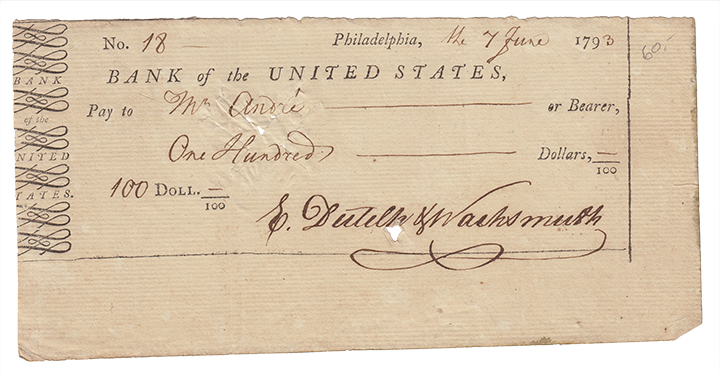 No. 18
Philadelphia, the 7 June 1793
60.-
BANK of the UNITED STATES,
Pay to Mr André or Bearer,
One Hundred Dollars, —/100
100 DOLL. —/100
E. Dutilh & Wachsmuth
BANK
of the
UNITED
STATES.